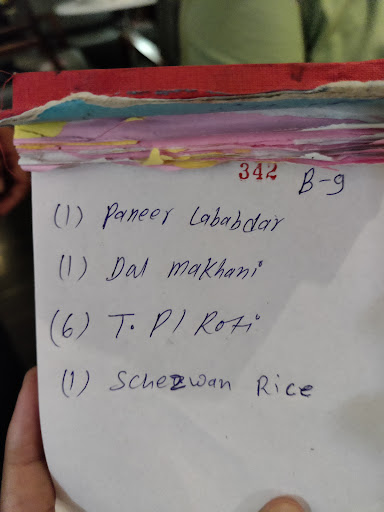 342 B-9
(1) Paneer Lababdar
(1) Dal makhani
(6) T. P/ Roti
(1) Schezwan Rice